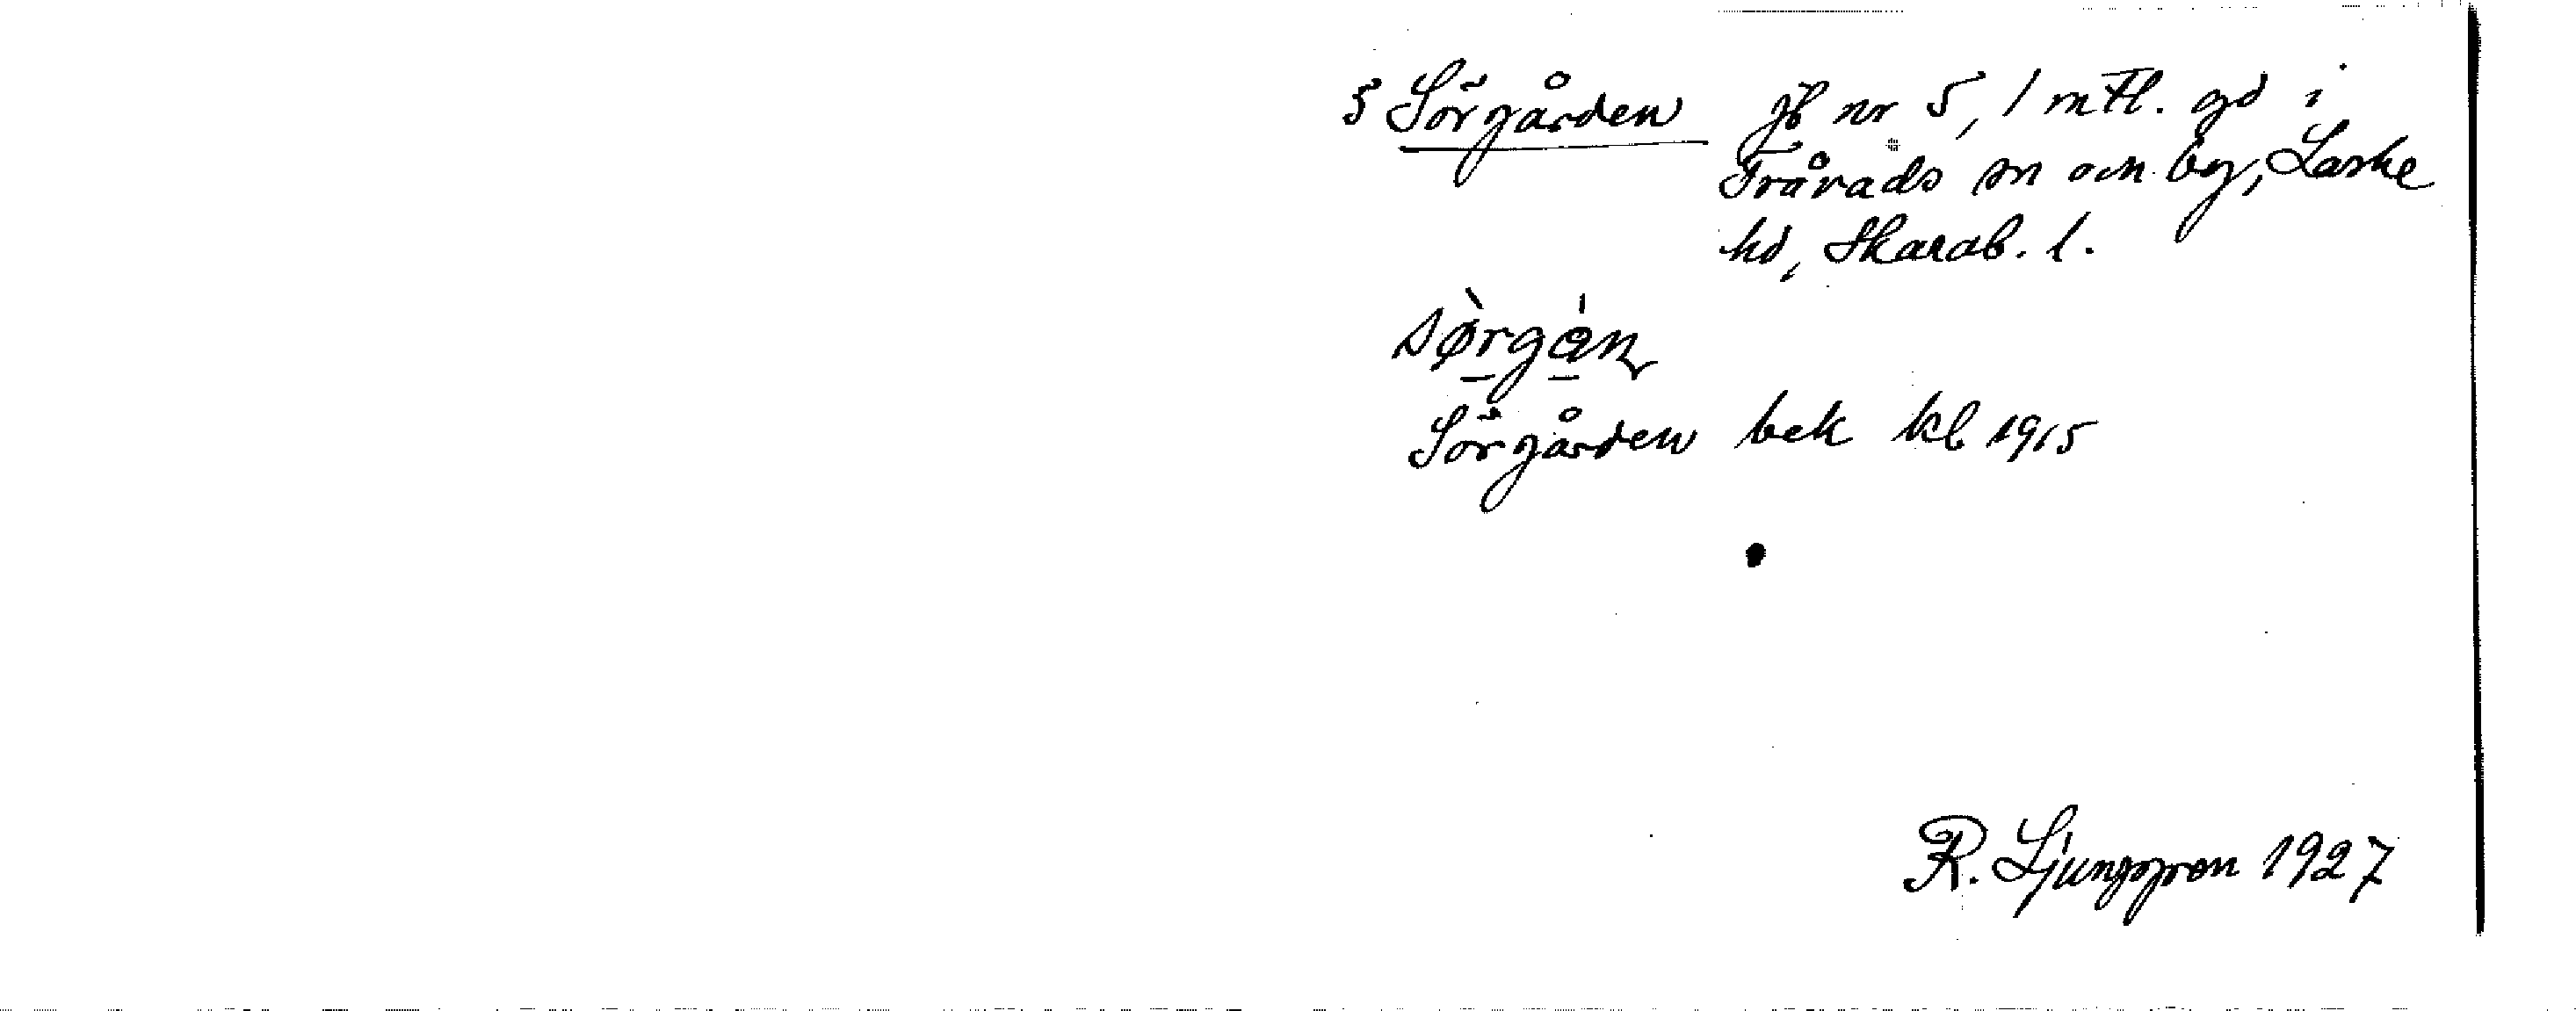 § Sörgården jb nr 5, 1 mtl. gd i
Tråvads sn och by, Laske
hd, Skarab. l.
sø̀rgán
Sörgården bek kb 1915
R. Ljunggren 1927